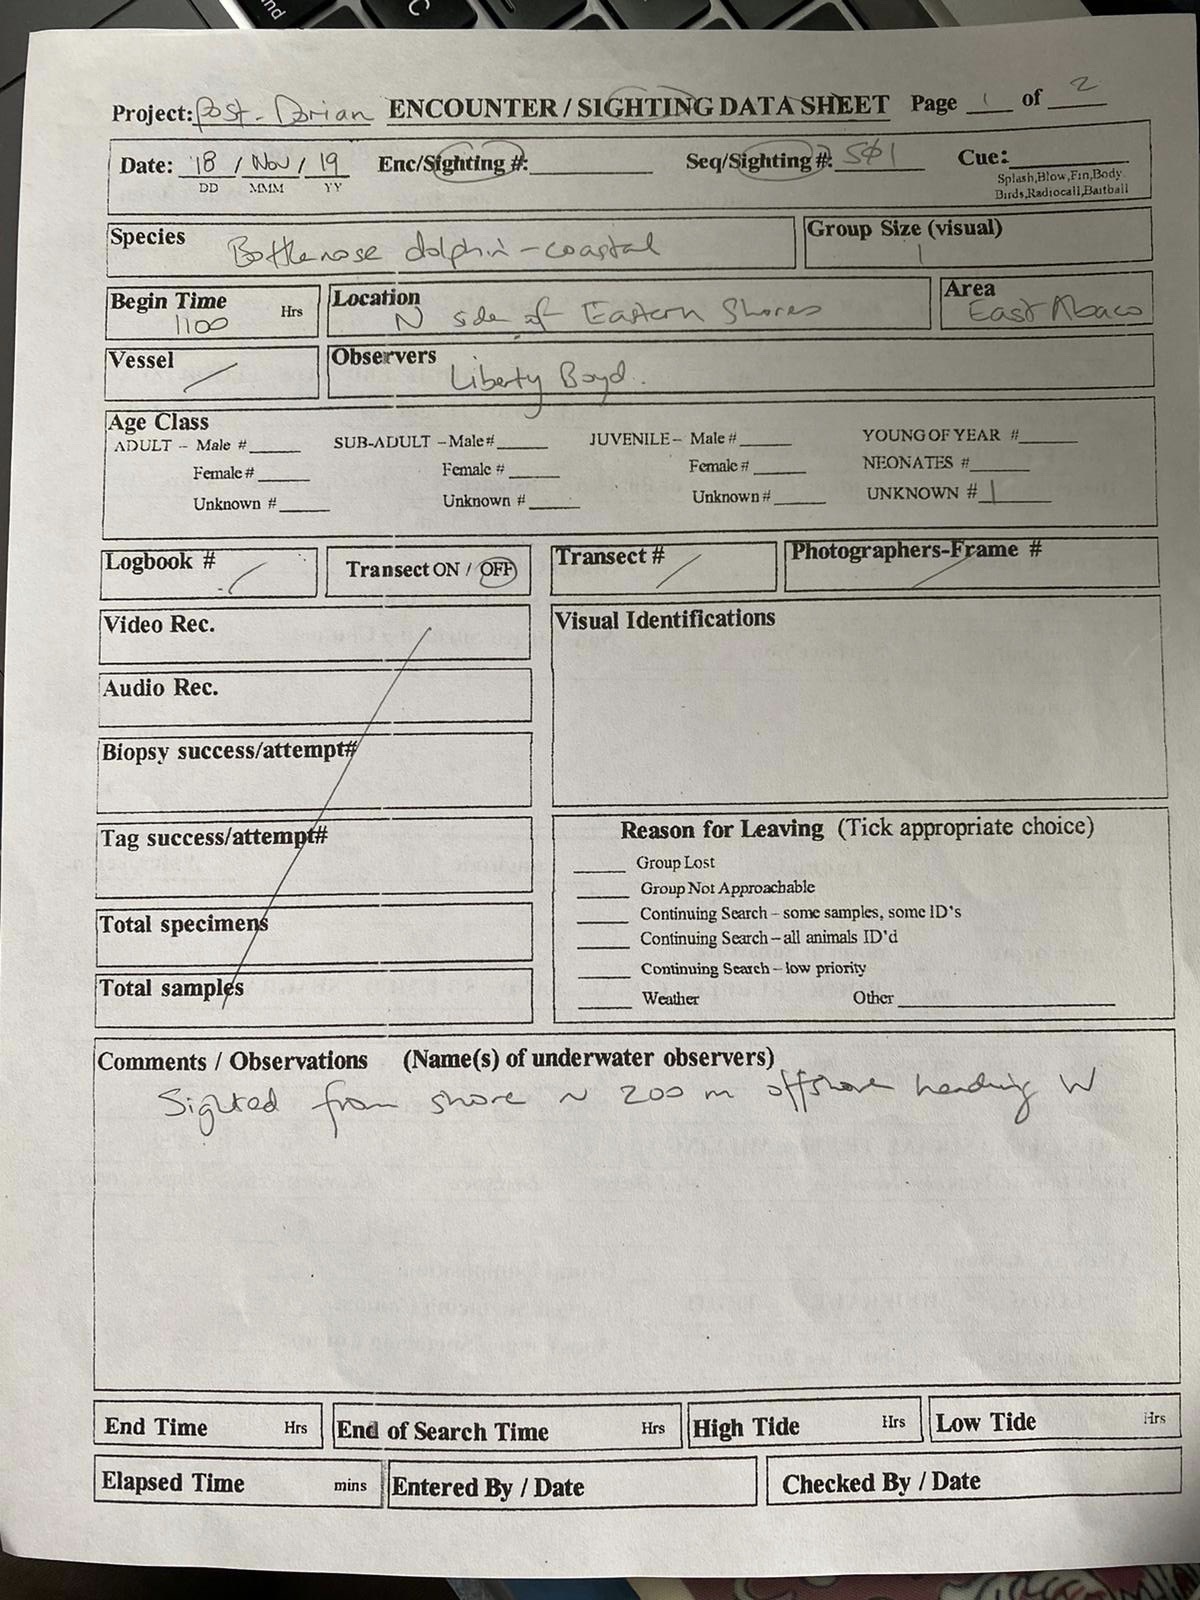 nd
C
Project: Post-Dorian ENCOUNTER / SIGHTING DATA SHEET Page 1 of 2
Date: 18 / Nov / 19 Enc/Sighting #: Seq/Sighting #: SØ1 Cue:
DD MMM YY
Splash,Blow,Fin,Body
Birds,Radiocall,Baitball
Species Bottlenose dolphin - coastal
Group Size (visual) 1
Begin Time 1100 Hrs
Location N side of Eastern Shores
Area East Abaco
Vessel /
Observers Liberty Boyd.
Age Class
ADULT – Male # SUB-ADULT – Male # JUVENILE – Male # YOUNG OF YEAR #
Female # Female # Female # NEONATES #
Unknown # Unknown # Unknown # UNKNOWN # 1
Logbook # / Transect ON / OFF Transect # / Photographers-Frame # /
Video Rec.
Audio Rec.
Biopsy success/attempt#
Tag success/attempt#
Total specimens
Total samples
Visual Identifications
Reason for Leaving (Tick appropriate choice)
Group Lost
Group Not Approachable
Continuing Search – some samples, some ID's
Continuing Search – all animals ID'd
Continuing Search – low priority
Weather Other
Comments / Observations (Name(s) of underwater observers)
Sighted from shore ~ 200 m offshore heading W
End Time Hrs End of Search Time Hrs High Tide Hrs Low Tide Hrs
Elapsed Time mins Entered By / Date Checked By / Date